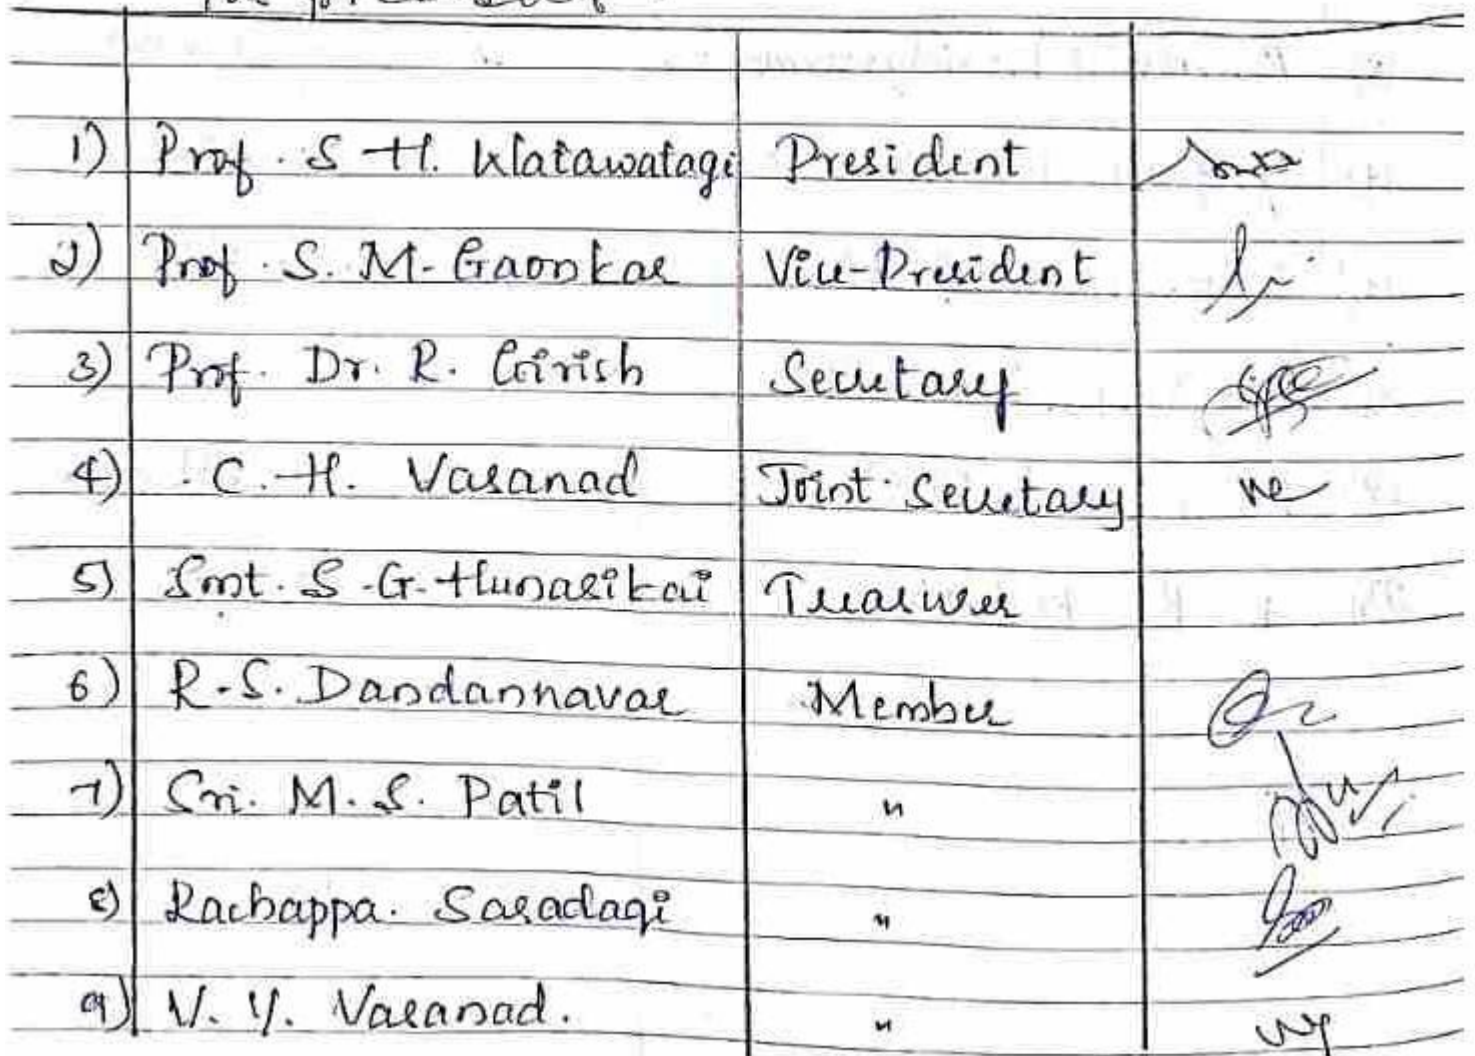 1) Prof. S. H. Watawatagi President
2) Prof. S. M. Gaonkar Vice-President
3) Prof. Dr. R. Girish Secretary
4) C. H. Vasanad Joint Secretary
5) Smt. S. G. Hunasikai Treasurer
6) R. S. Dandannavar Member
7) Sri. M. S. Patil "
8) Rachappa. Saradagi "
9) V. Y. Vasanad. "